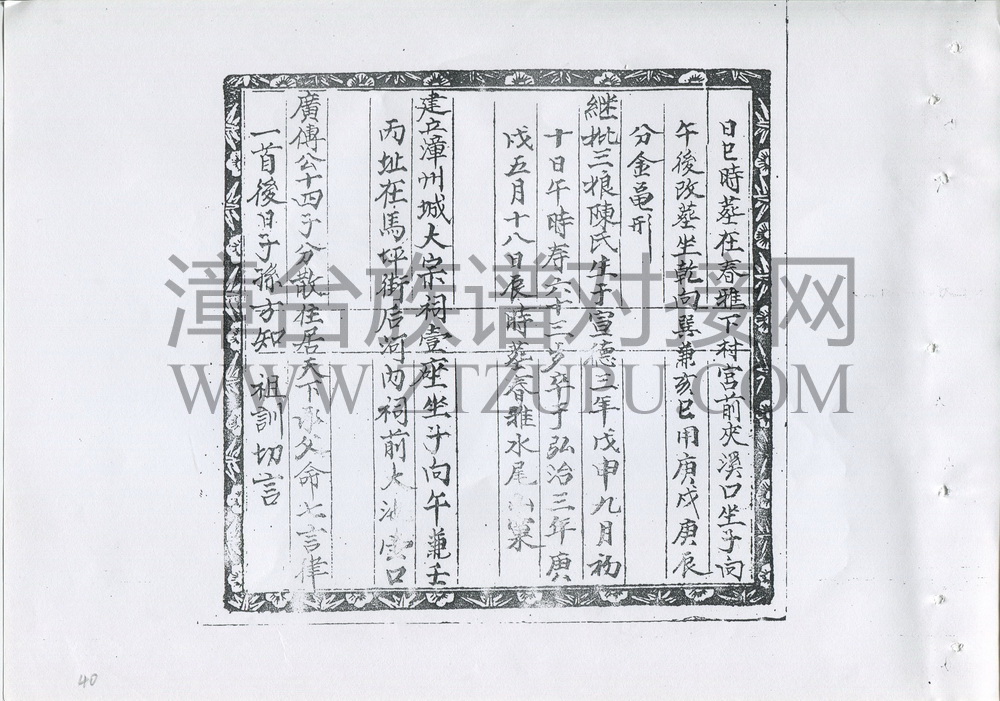 日巳時葬在春雅下村宮前夾溪口坐子向
午後改葬坐乾向巽兼亥巳用庚戌庚辰
分金亀形
継妣三娘陳氏生于宣德三年戊申九月初
十日午時寿六十三岁卒于弘治三年庚
戌五月十八日辰時葬春雅水尾山窠
建立漳州城大宗祠壹座坐子向午兼壬
丙址在馬坪街后河内祠前大池 口
廣傳公十四子分散住居天下承父命七言律
一首後日子孫方知 祖訓切言
漳台族谱对接网
WWW.ZTZUPU.COM
40